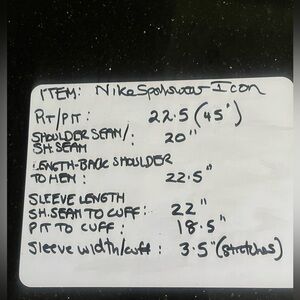 ITEM: Nike Sportswear Icon
Pit/Pit: 22.5 (45")
SHOULDER SEAM/: 20"
SH.SEAM
LENGTH-BACK SHOULDER
TO HEM: 22.5"
SLEEVE LENGTH
SH.SEAM TO CUFF: 22"
PIT TO CUFF: 18.5"
Sleeve width/cuff: 3.5" (stretches)